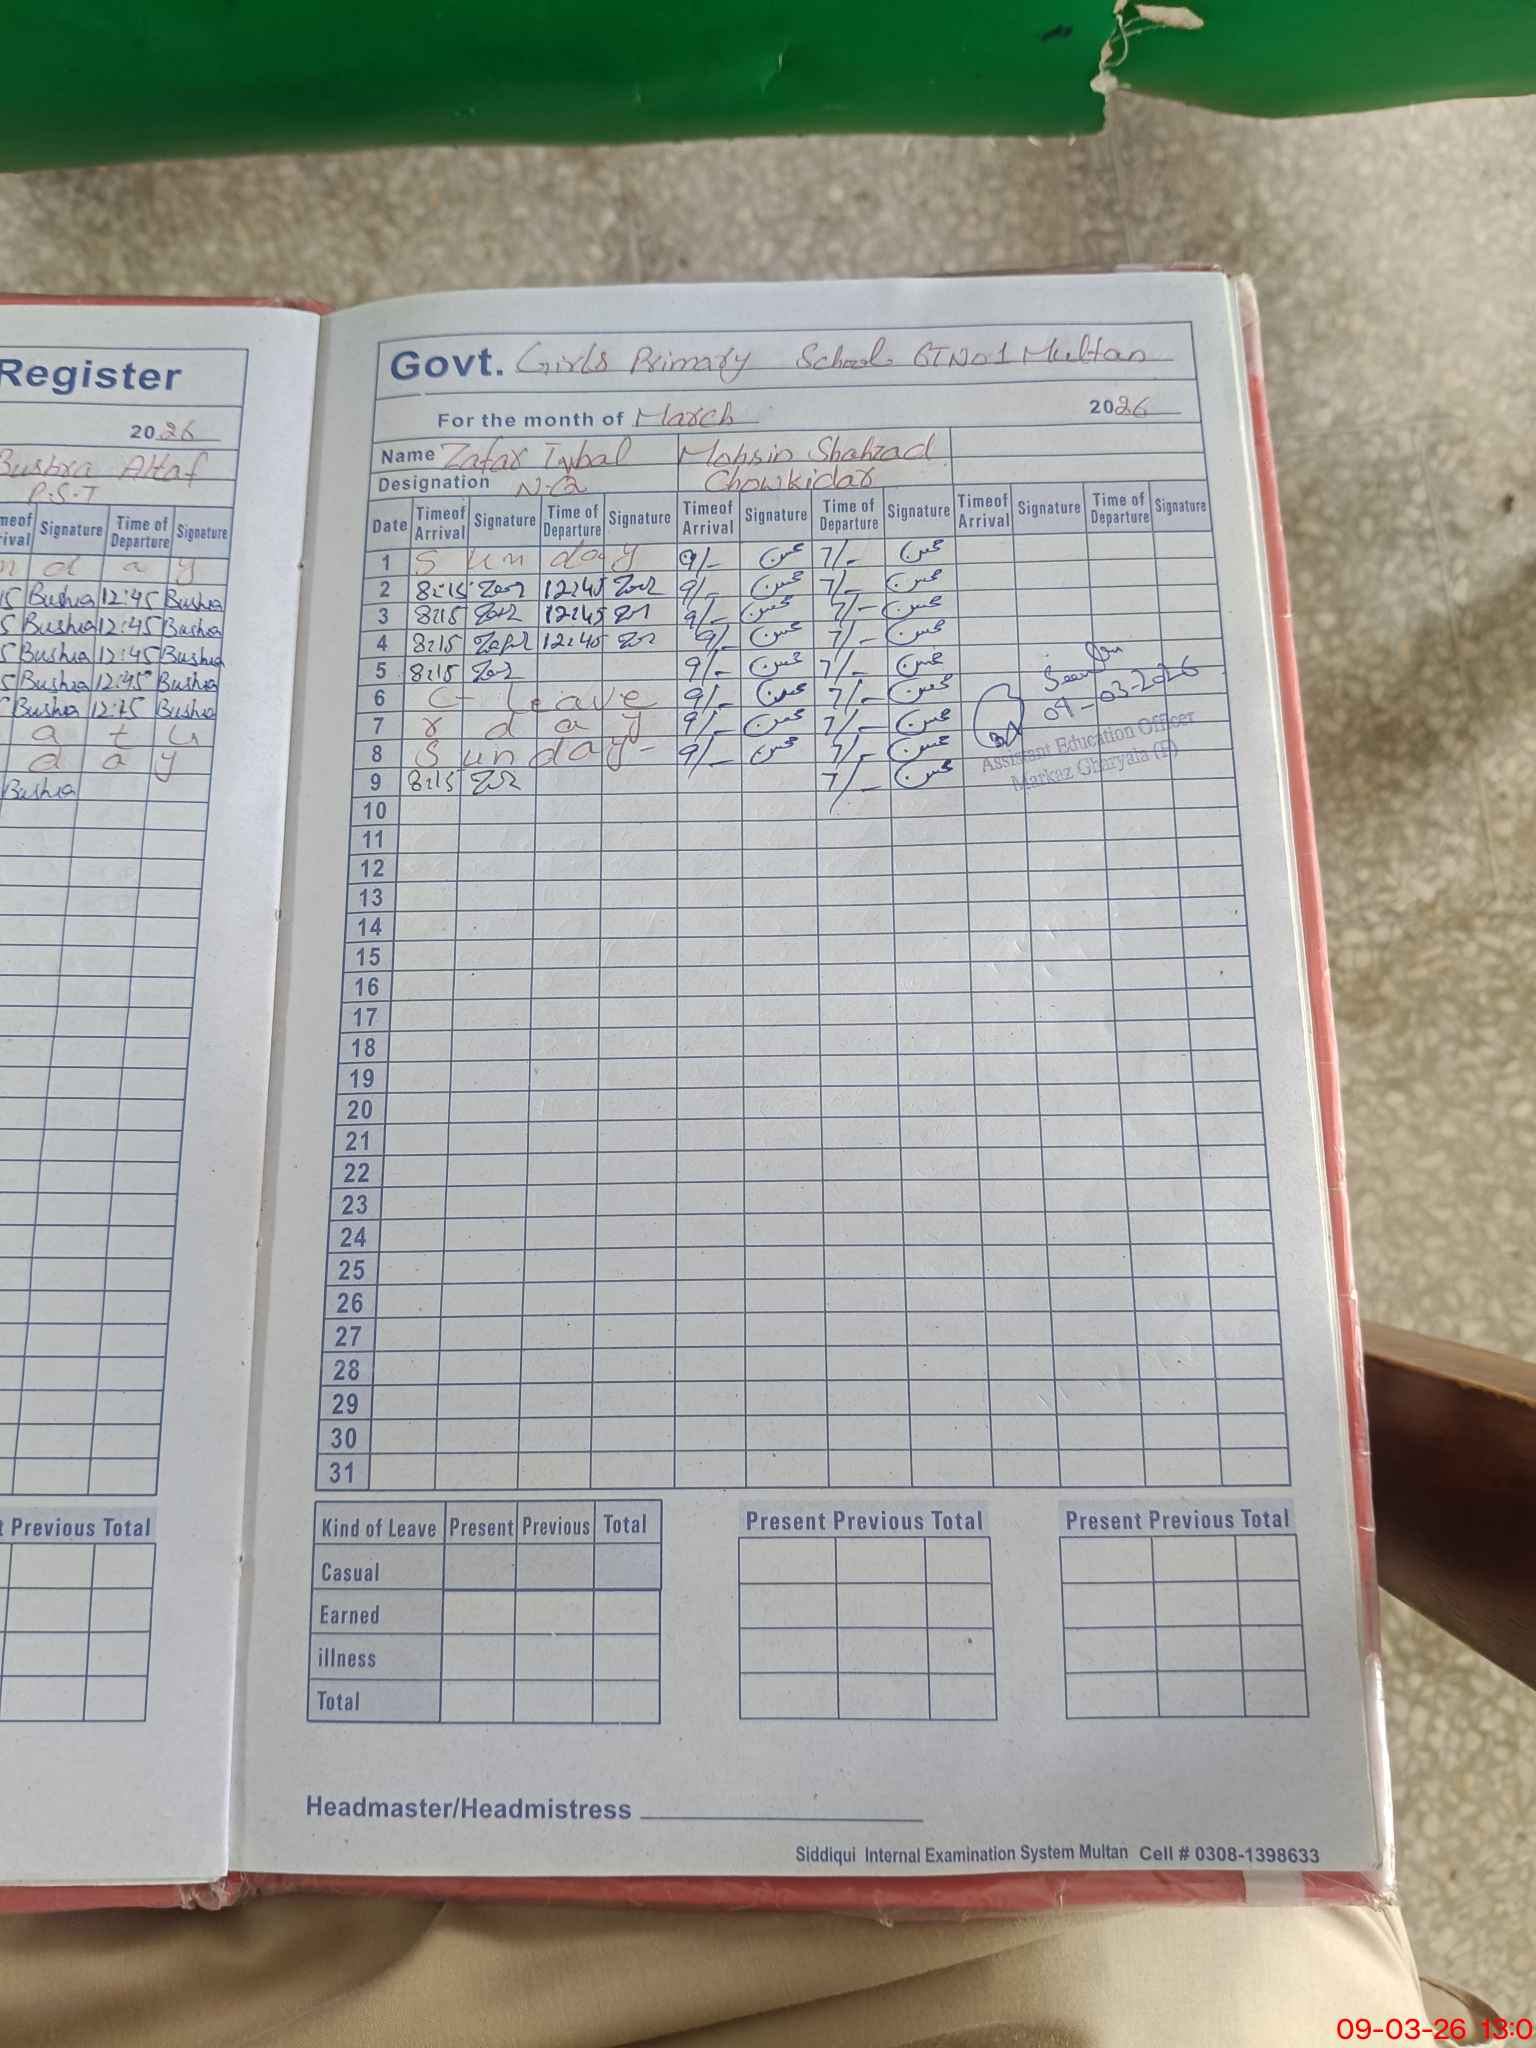 Register
2026
Bushra Altaf
P.S.T
Signature Time of Departure Signature
n d a y
15 Bushra 12:45 Bushra
5 Bushra 12:45 Bushra
5 Bushra 12:45 Bushra
5 Bushra 12:45 Bushra
Bushra Bushra
a t u
d a y
Bushra
Previous Total
Govt. Girls Primary School No 1 Multan
For the month of March 2026
Name Zafar Iqbal Mohsin Shahzad
Designation Chowkidar
Date Timeof Arrival Signature Time of Departure Signature Timeof Arrival Signature Time of Departure Signature Timeof Arrival Signature Time of Departure Signature
1 S un da y 9/- محسن 7/- محسن
2 8:15 12:45 9/- محسن 7/- محسن
3 8:15 12:45 9/- محسن 7/- محسن
4 8:15 12:45 9/- محسن 7/- محسن
5 8:15 9/- محسن 7/- محسن
6 C- Leave 9/- محسن 7/- محسن
7 r d a y 9/- محسن 7/- محسن
8 S un d a y- 9/- محسن 7/- محسن
9 8:15 7/- محسن
Seen
09-03-2026
Assistant Education Officer
Markaz Gharyala (F)
10
11
12
13
14
15
16
17
18
19
20
21
22
23
24
25
26
27
28
29
30
31
Kind of Leave Present Previous Total Present Previous Total Present Previous Total
Casual
Earned
illness
Total
Headmaster/Headmistress
Siddiqui Internal Examination System Multan Cell # 0308-1398633
09-03-26 13:0